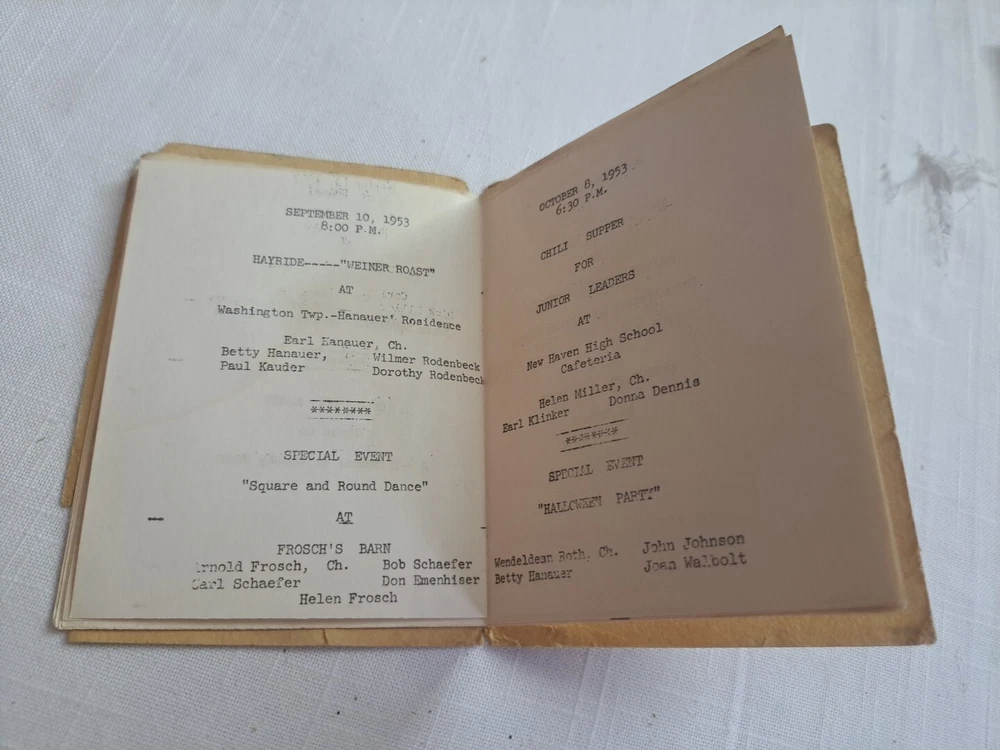 SEPTEMBER 10, 1953
8:00 P.M.
HAYRIDE-----"WEINER ROAST"
AT
Washington Twp.-Hanauer' Rosidence
Earl Hanauer, Ch.
Betty Hanauer, Wilmer Rodenbeck
Paul Kauder Dorothy Rodenbeck
********
SPECIAL EVENT
"Square and Round Dance"
AT
FROSCH'S BARN
Arnold Frosch, Ch. Bob Schaefer
Carl Schaefer Don Emenhiser
Helen Frosch
OCTOBER 8, 1953
6:30 P.M.
CHILI SUPPER
FOR
JUNIOR LEADERS
AT
New Haven High School
Cafeteria
Helen Miller, Ch.
Earl Klinker Donna Dennis
********
SPECIAL EVENT
"HALLOWEEN PARTY"
Wendeldean Roth, Ch. John Johnson
Betty Hanauer Joan Walbolt